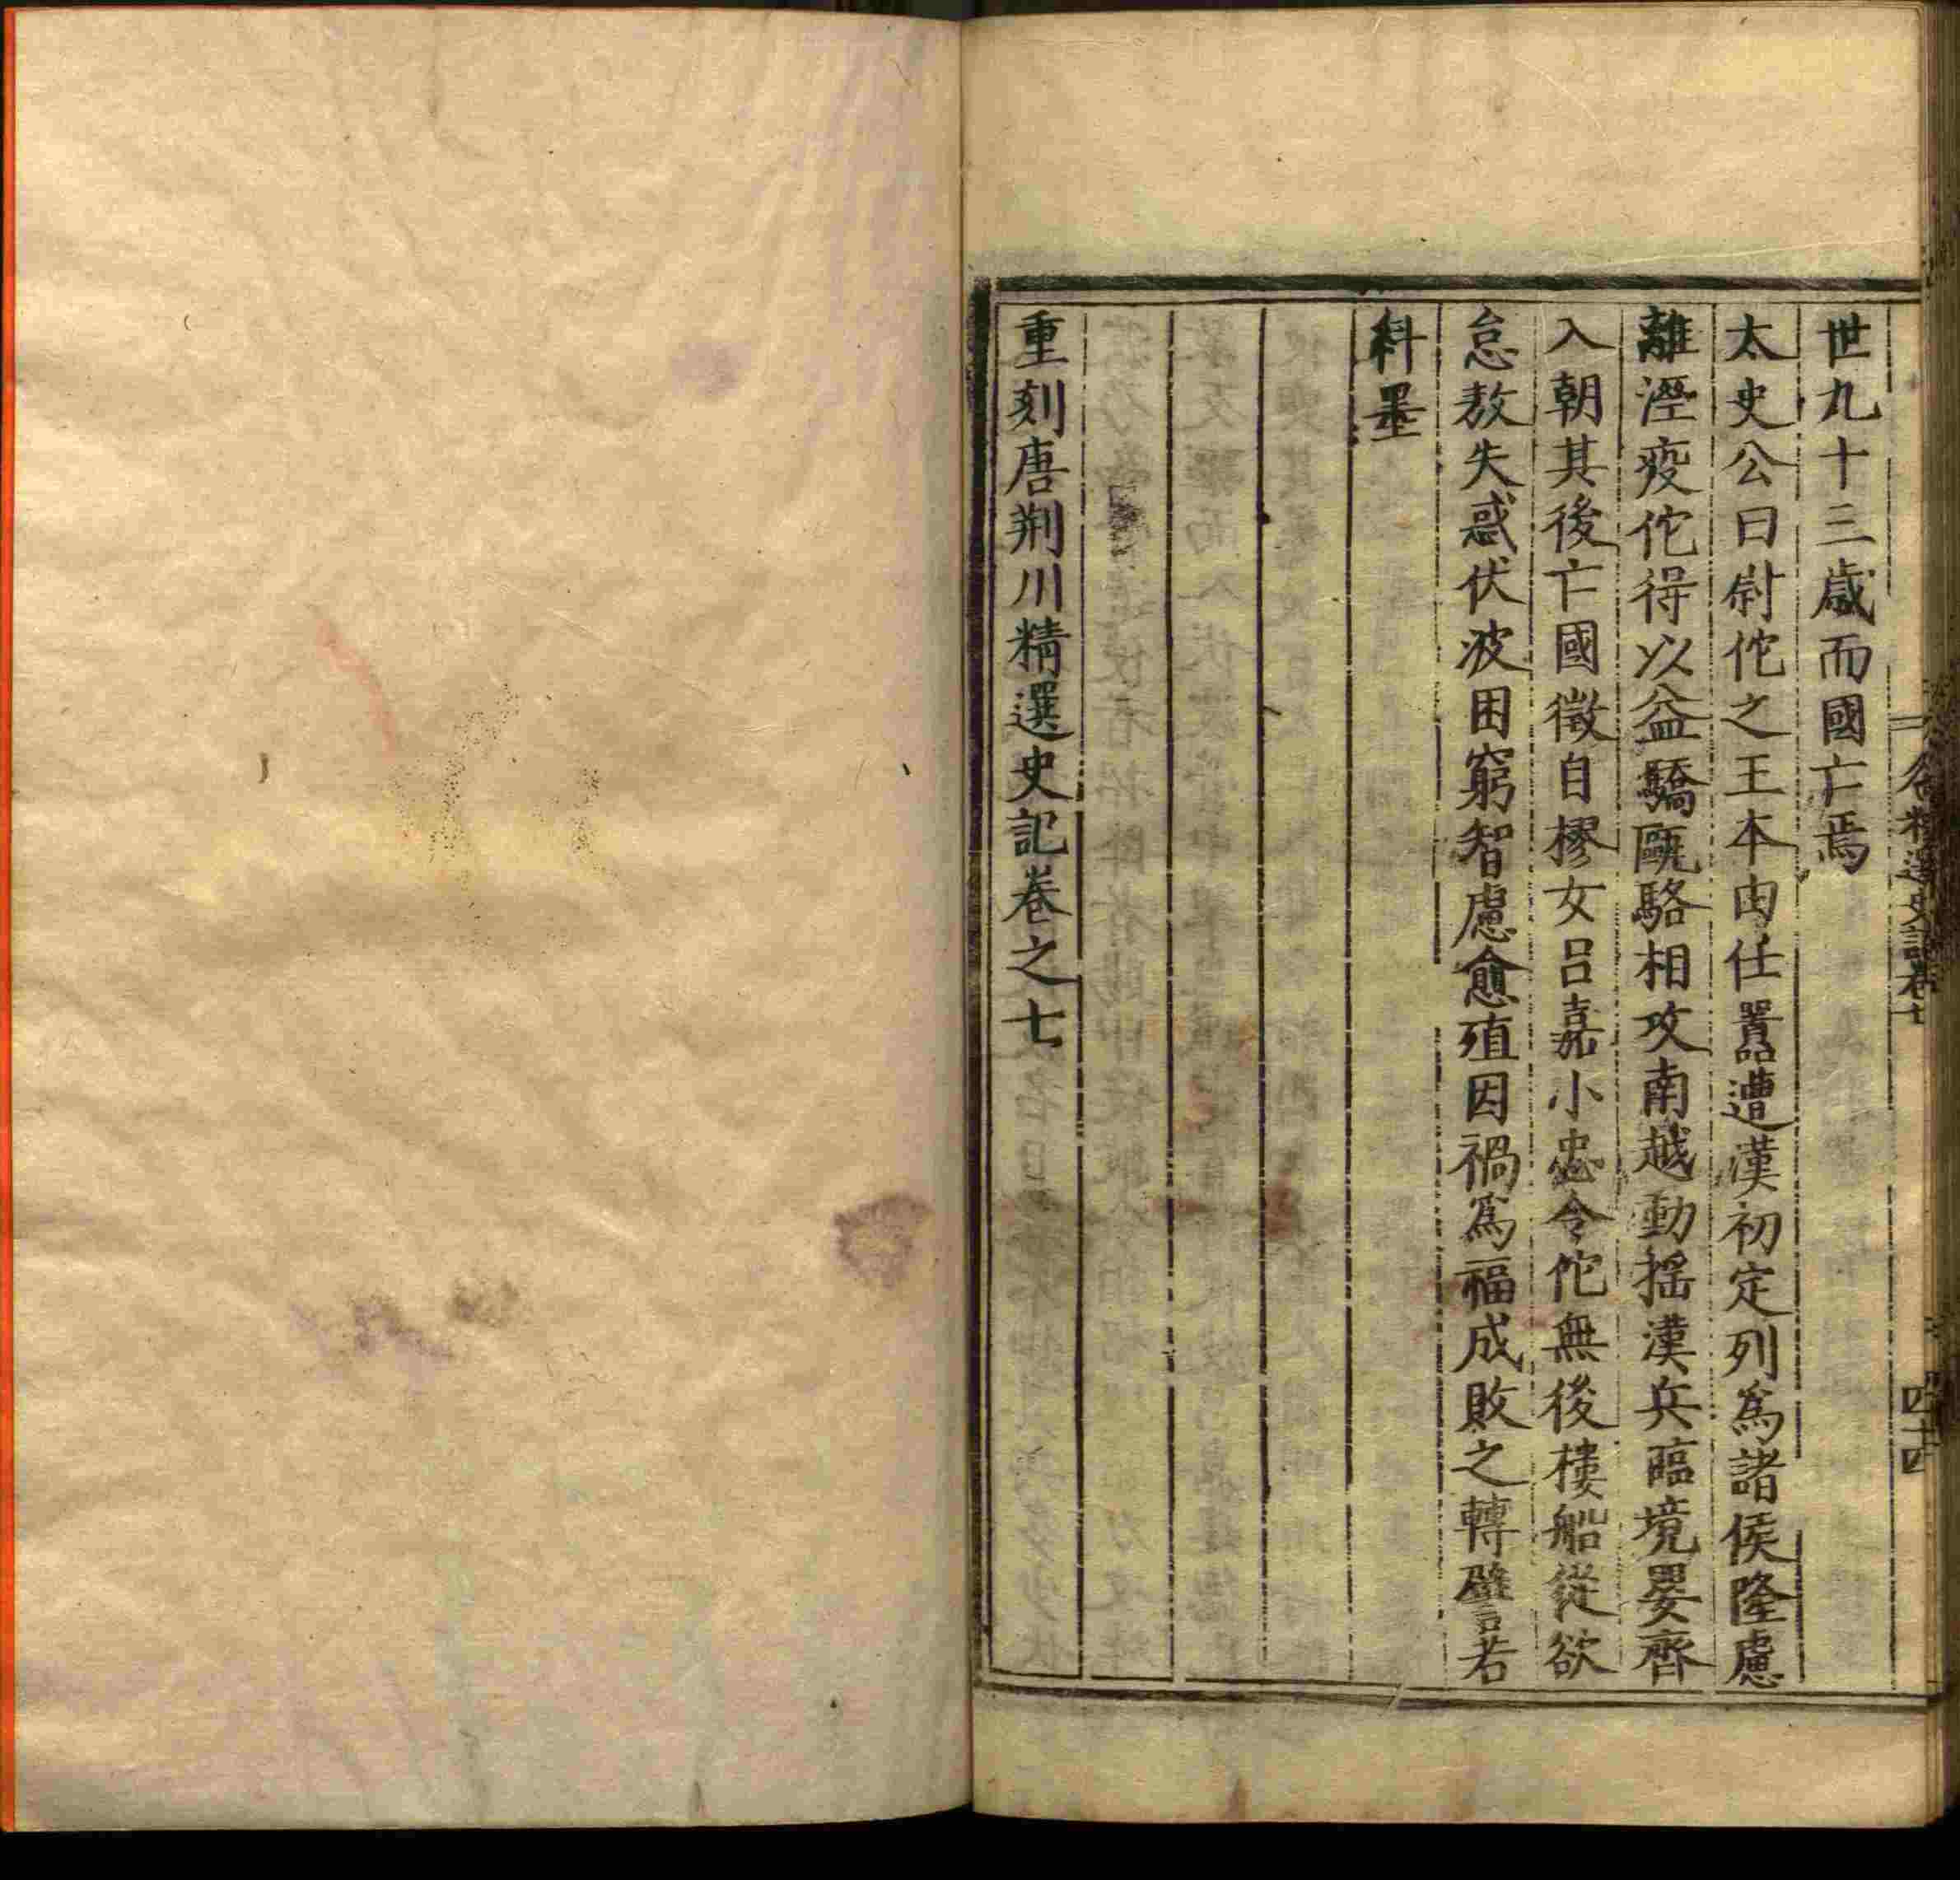 世九十三歳而國亡焉
太史公曰尉佗之王本由任囂遭漢初定列爲諸侯隆慮
離溼疫佗得以益驕甌駱相攻南越動揺漢兵臨境嬰齊
入朝其後亡國徵自樛女呂嘉小忠令佗無後樓船從欲
怠敖失惑伏波困窮智慮愈殖因禍爲福成敗之轉譬若
糾墨
重刻唐荆川精選史記卷之七
精選史記卷七
四十四